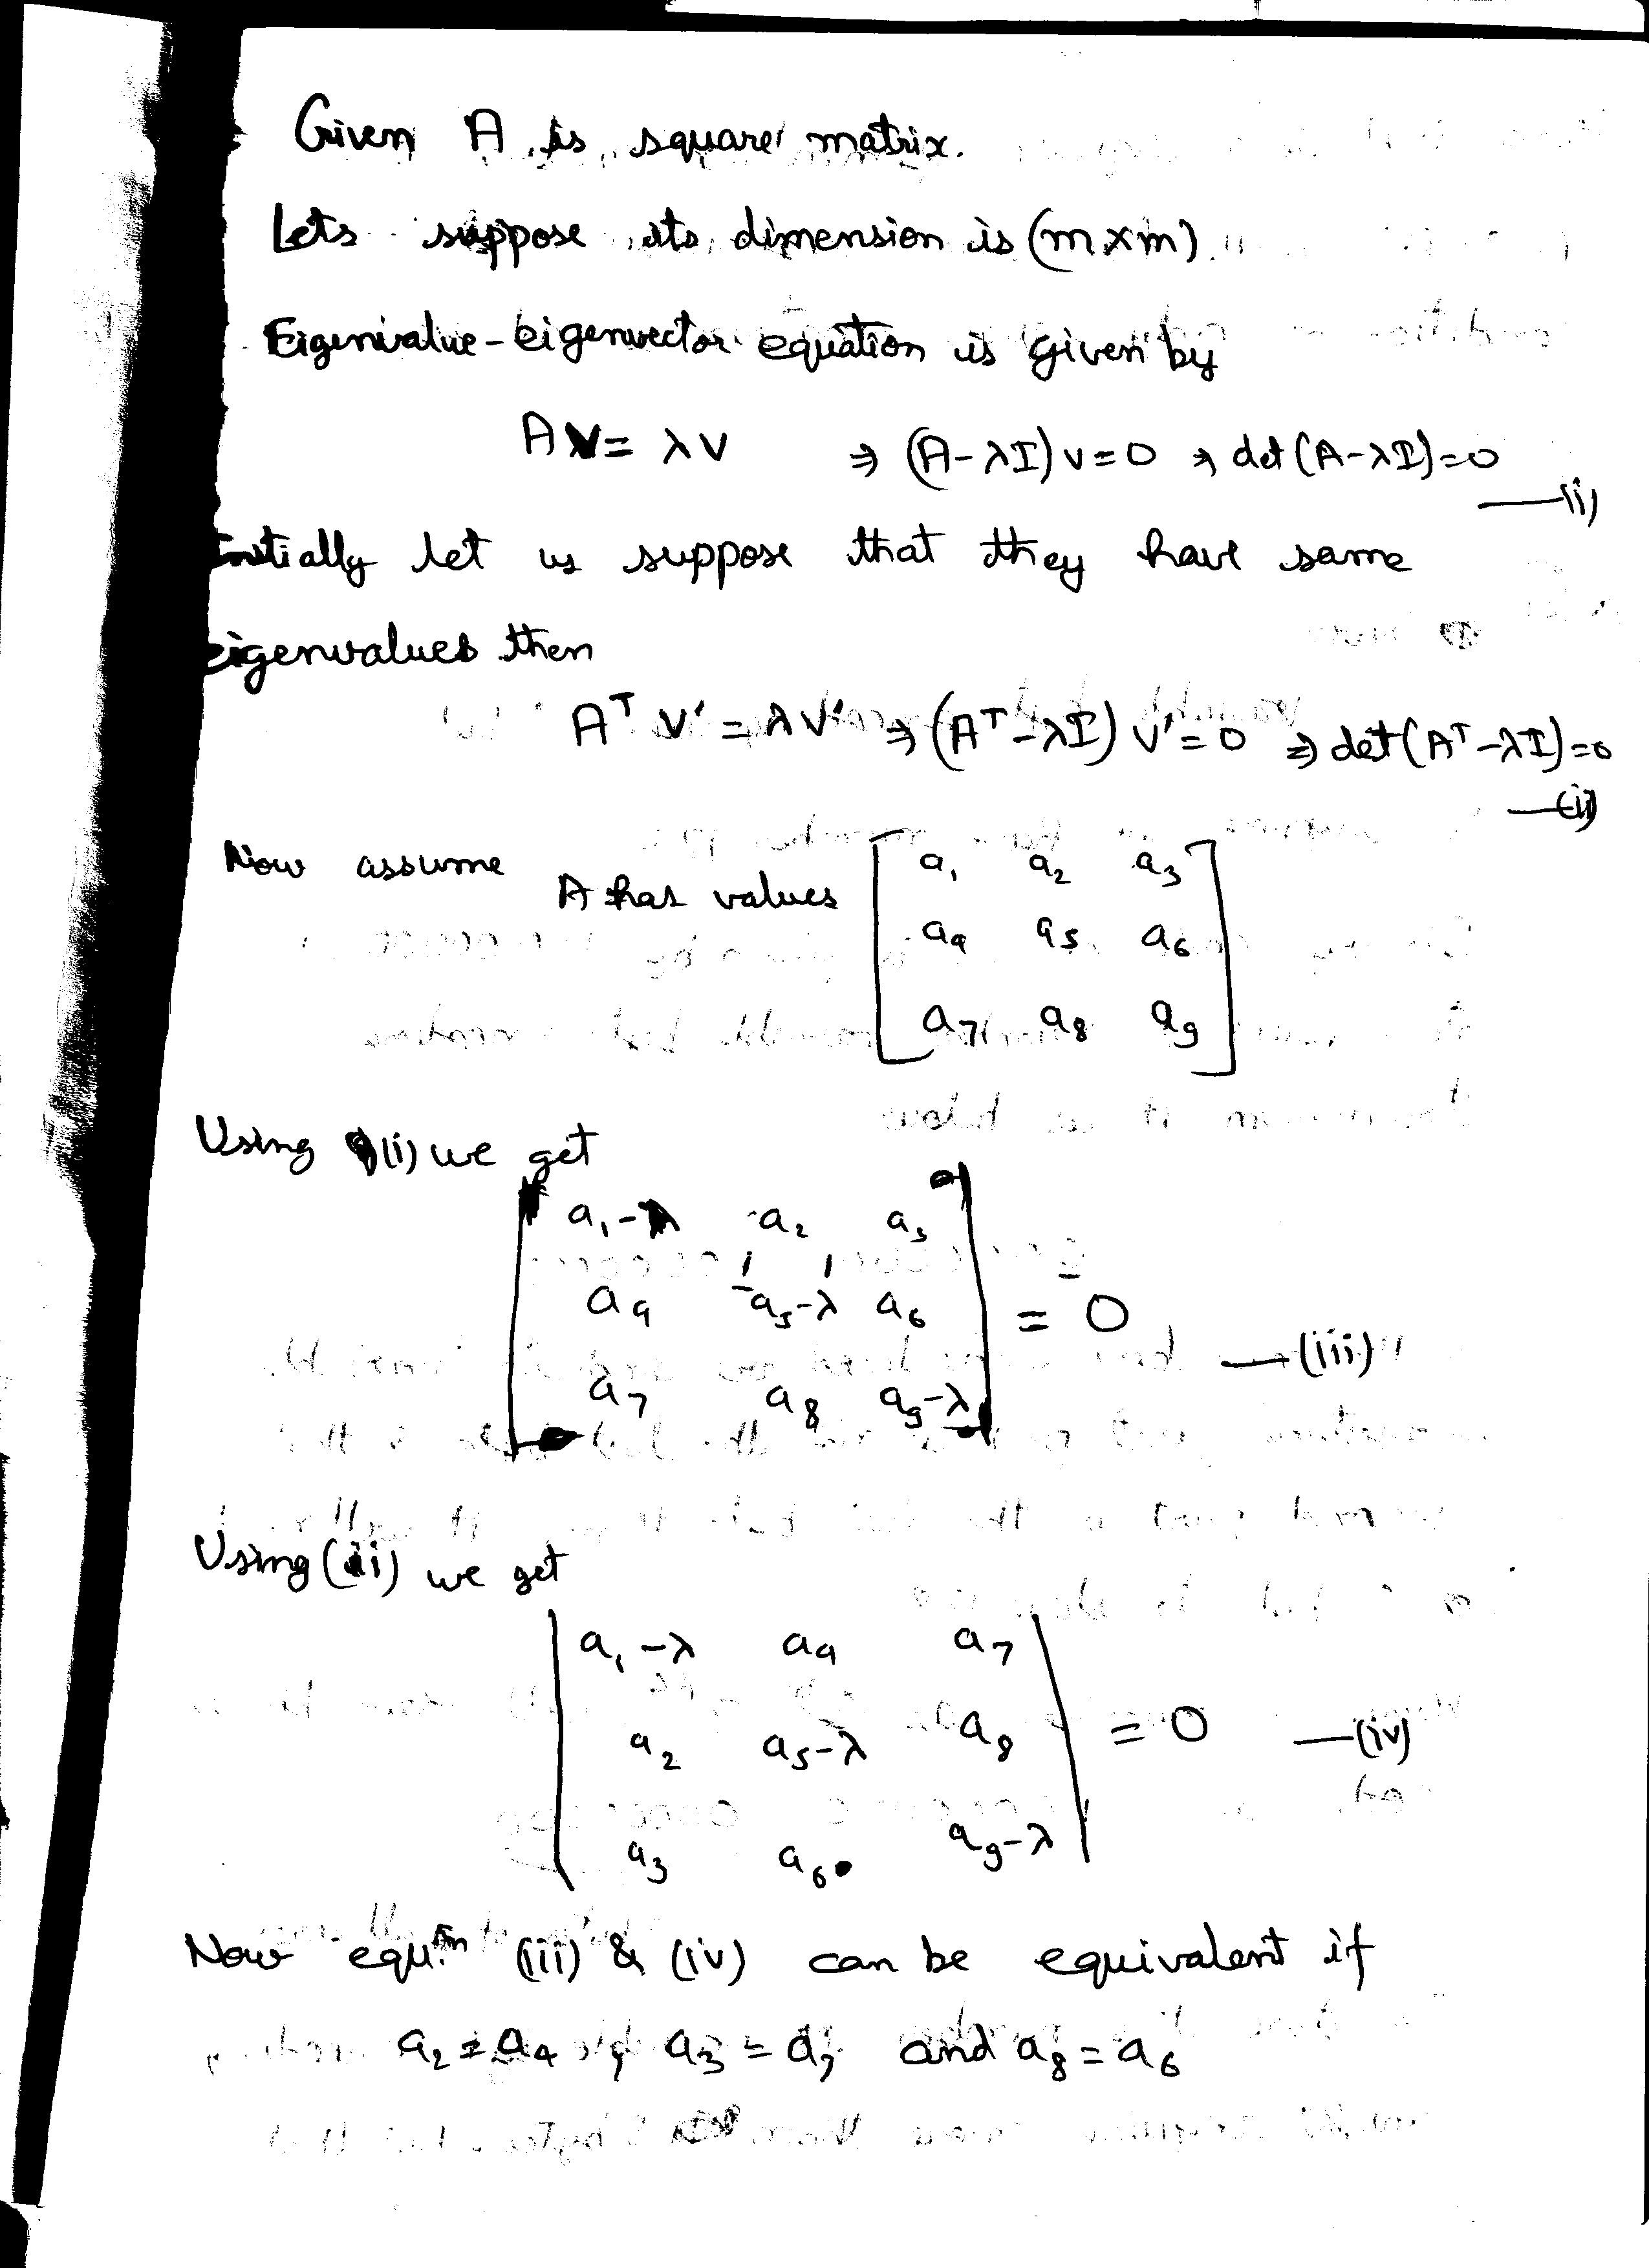 Given A is square matrix.
Lets suppose its dimension is (m×m)
Eigenvalue-eigenvector equation is given by
AV = λV ⇒ (A-λI)v=0 ⇒ det(A-λI)=0
—(i)
Initially let us suppose that they have same
eigenvalues then
A^T V' = λV' ⇒ (A^T-λI) V'=0 ⇒ det(A^T-λI)=0
—(ii)
Now assume A has values
a1 a2 a3
a4 a5 a6
a7 a8 a9
Using (i) we get
a1-λ a2 a3
a4 a5-λ a6
= 0 —(iii)
a7 a8 a9-λ
Using (ii) we get
a1-λ a4 a7
a2 a5-λ a8 = 0 —(iv)
a3 a6 a9-λ
Now equn (iii) & (iv) can be equivalent if
a2 = a4, a3 = a7 and a8 = a6